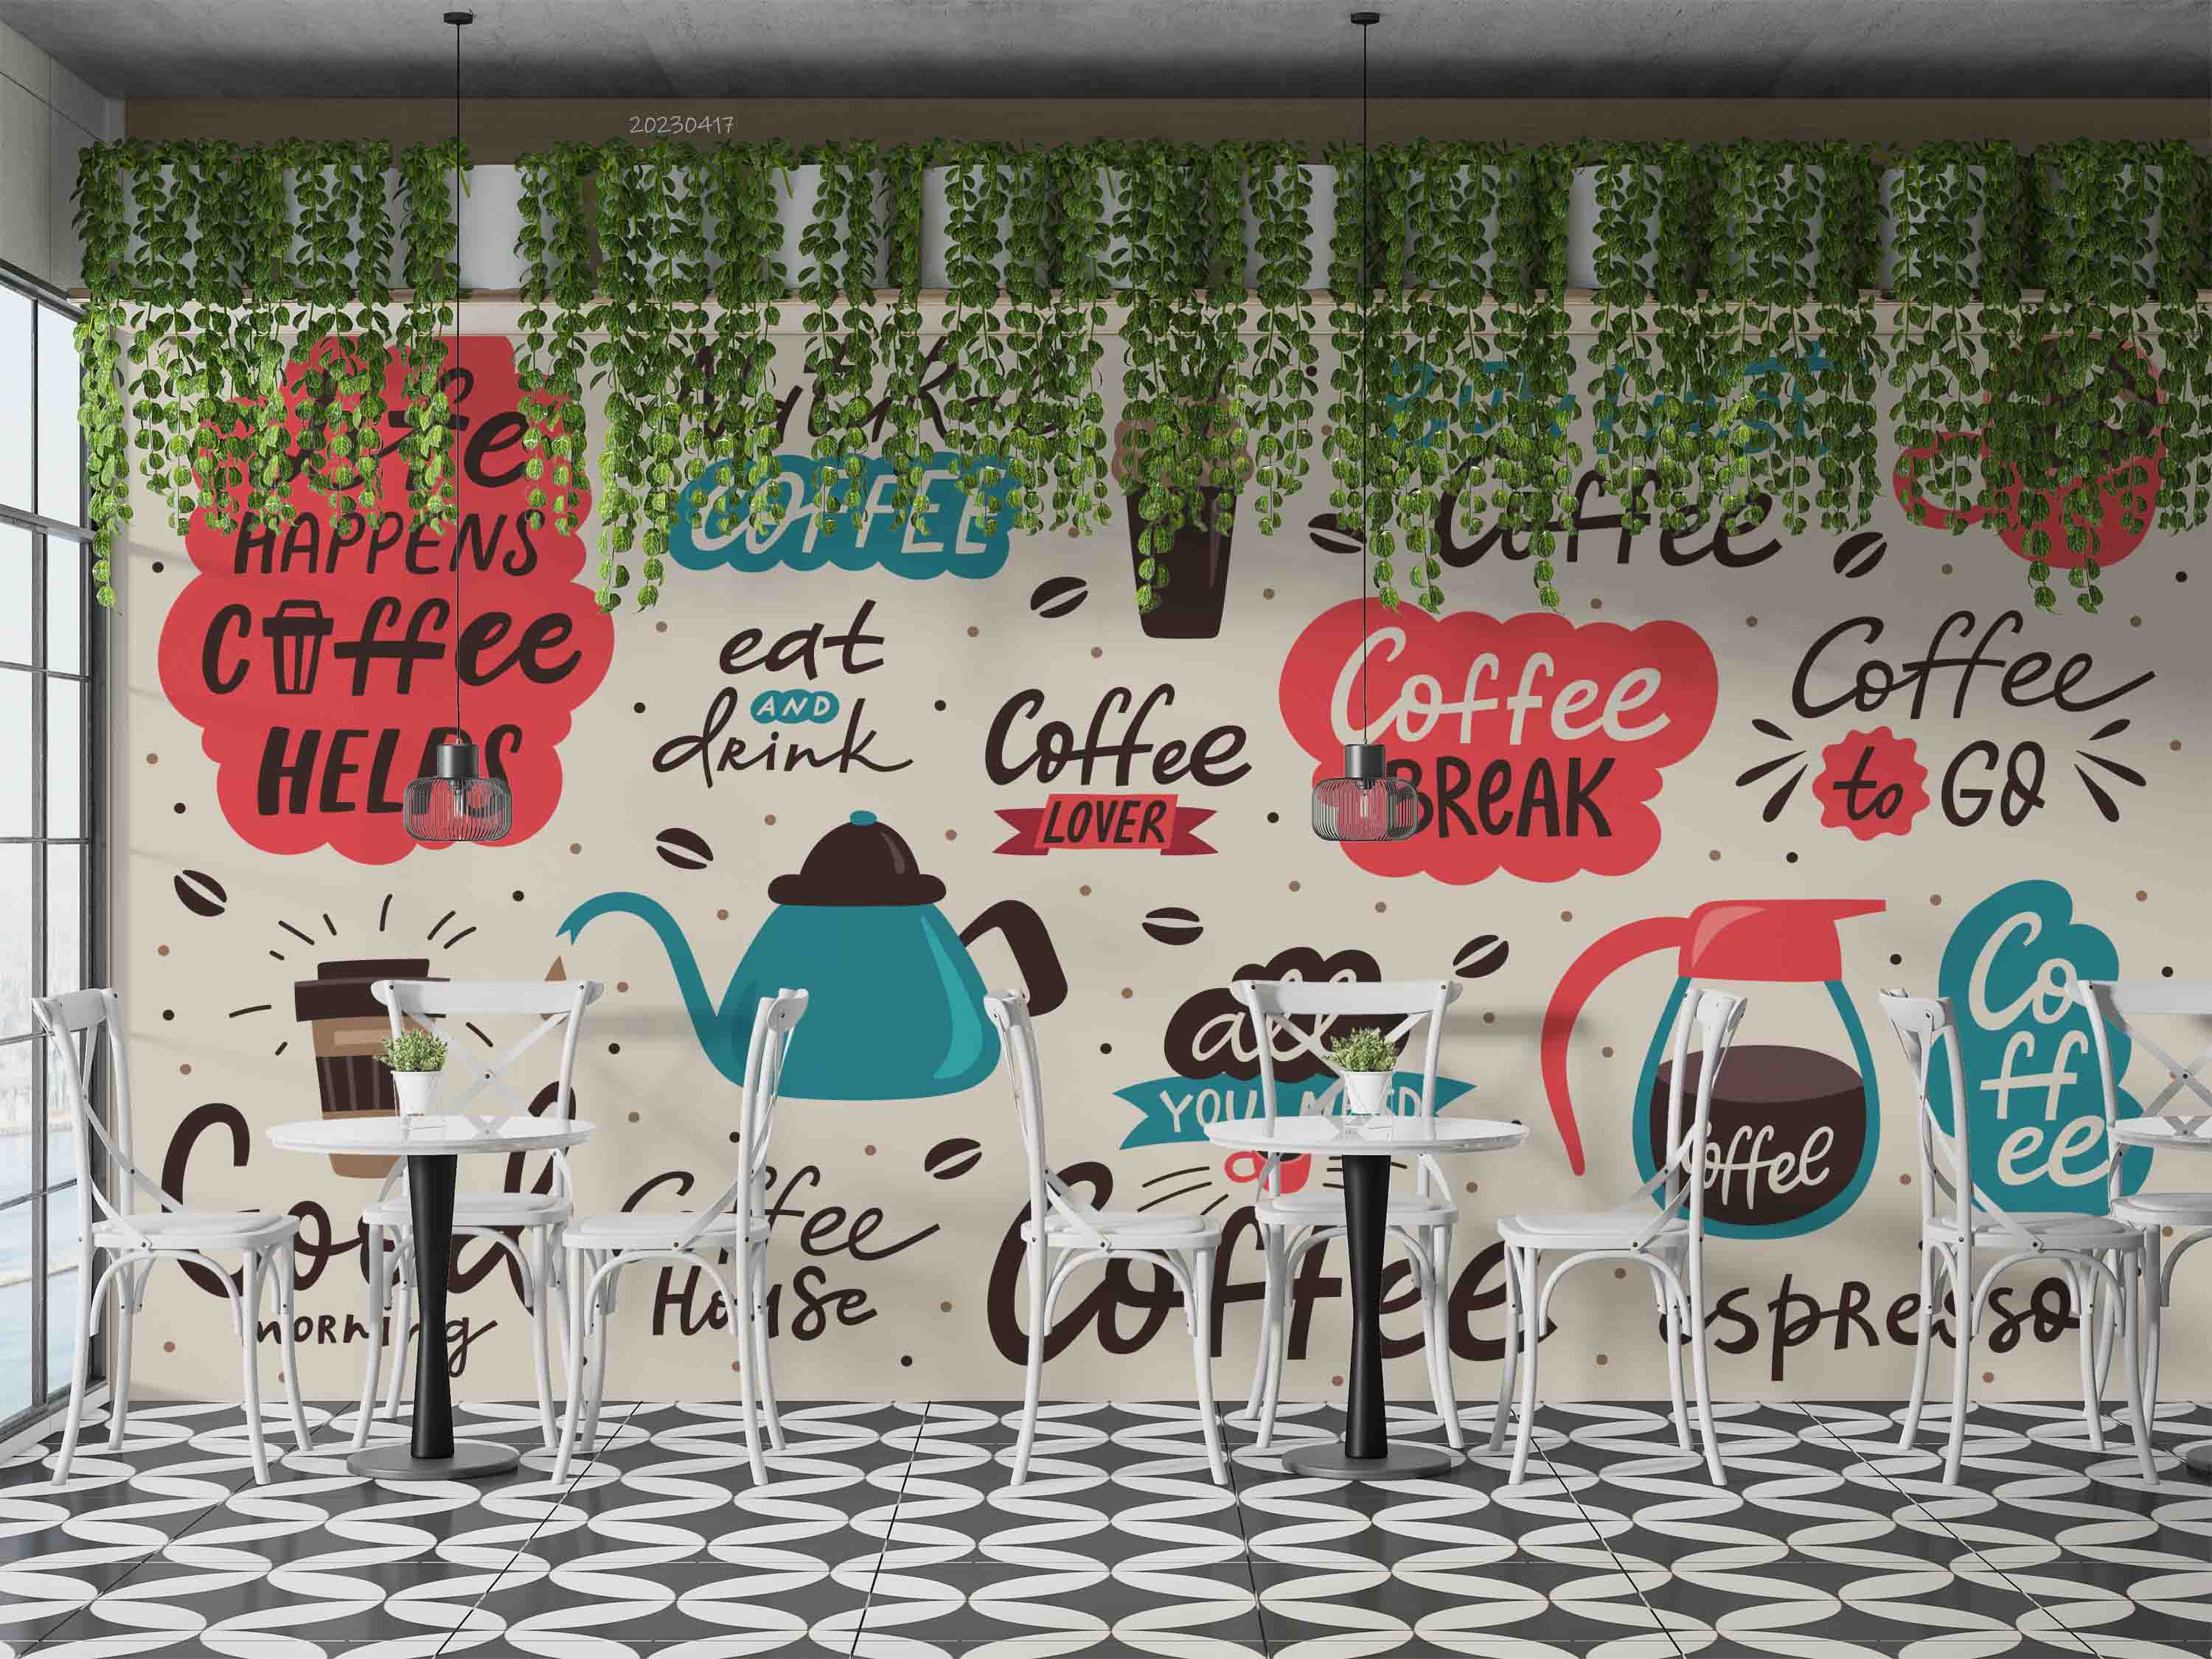 20230417
Life
HAPPENS
Coffee
HELPS
COFFEE
eat
AND
drink
Coffee
LOVER
Coffee
Coffee
BREAK
Coffee
to GO
Good
morning
Coffee
House
all
YOU NEED
Coffee
Coffee
espresso
Co
ff
ee